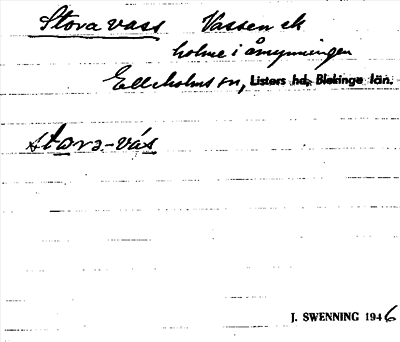 Stora vass Vassen ek
holme i åmynningen
Elleholms sn, Listers hd, Blekinge län.
stora-vás
J. SWENNING 1946